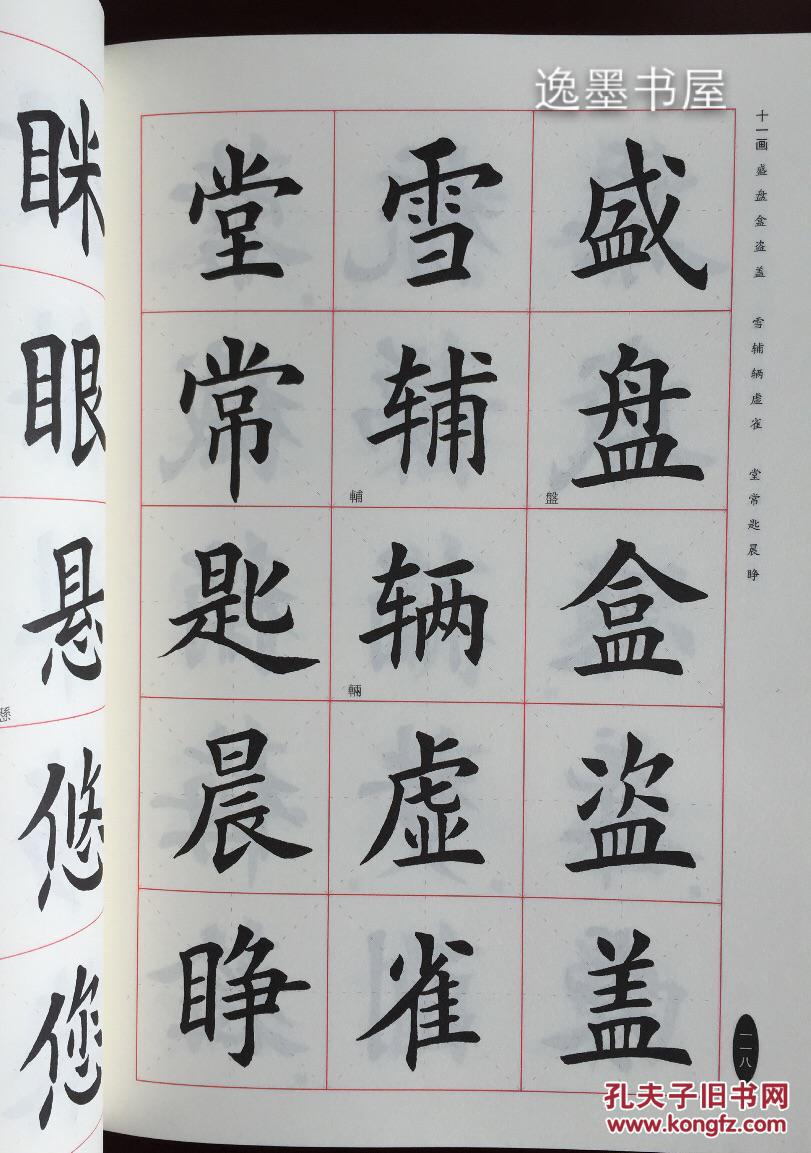 逸墨书屋
十一画 盛盘盒盗盖 雪辅辆虚雀 堂常匙晨睁
盛
盘
盤
盒
盗
盖
雪
辅
輔
辆
輛
虚
雀
堂
常
匙
晨
睁
一一八
眯
眼
悬
懸
悠
您
孔夫子旧书网
www.kongfz.com